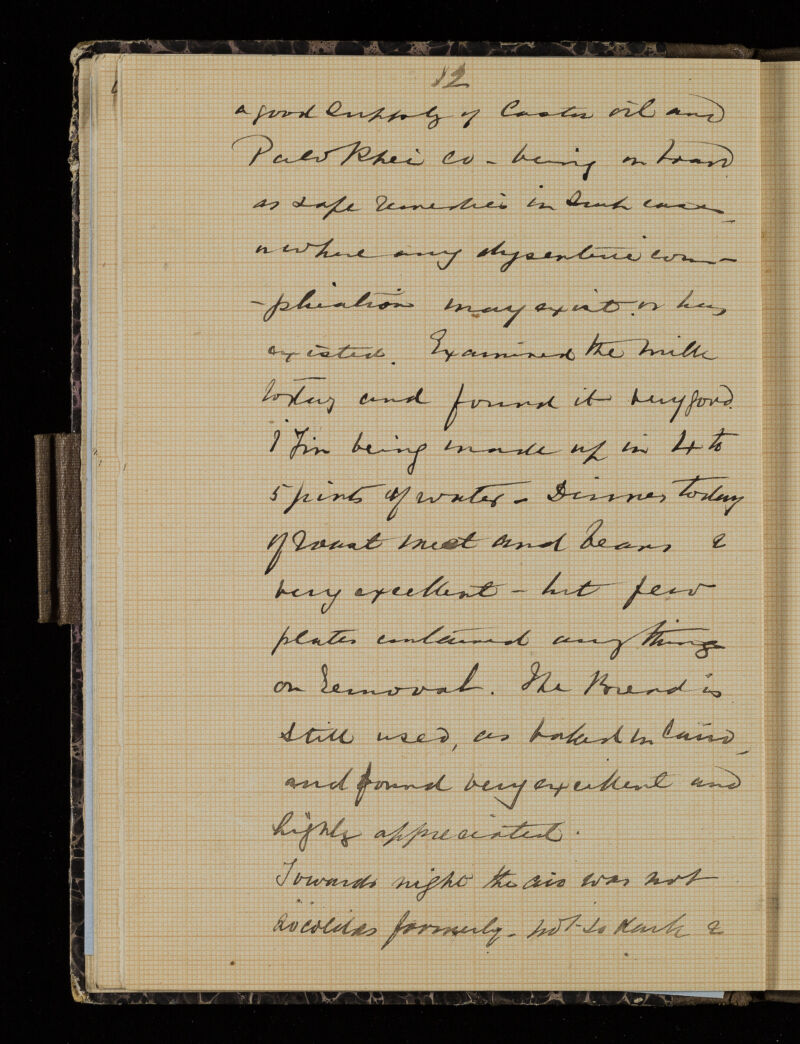 12
a good supply of Castor oil and
Pulv Rhei Co - being on board
as safe remedies in such cases,
or where any dysenteric com-
-plication may exist or has
existed. Examined the milk
today and found it very good.
1 Tin being made up in 4 to
5 pints of water - Dinner today
of roast meat and beans &
very excellent - but few
plates contained anything
on removal. The Bread is
still used, as baked in Cairo,
and found very excellent and
highly appreciated.
Towards night the air was not
so cold as formerly - not so dark &